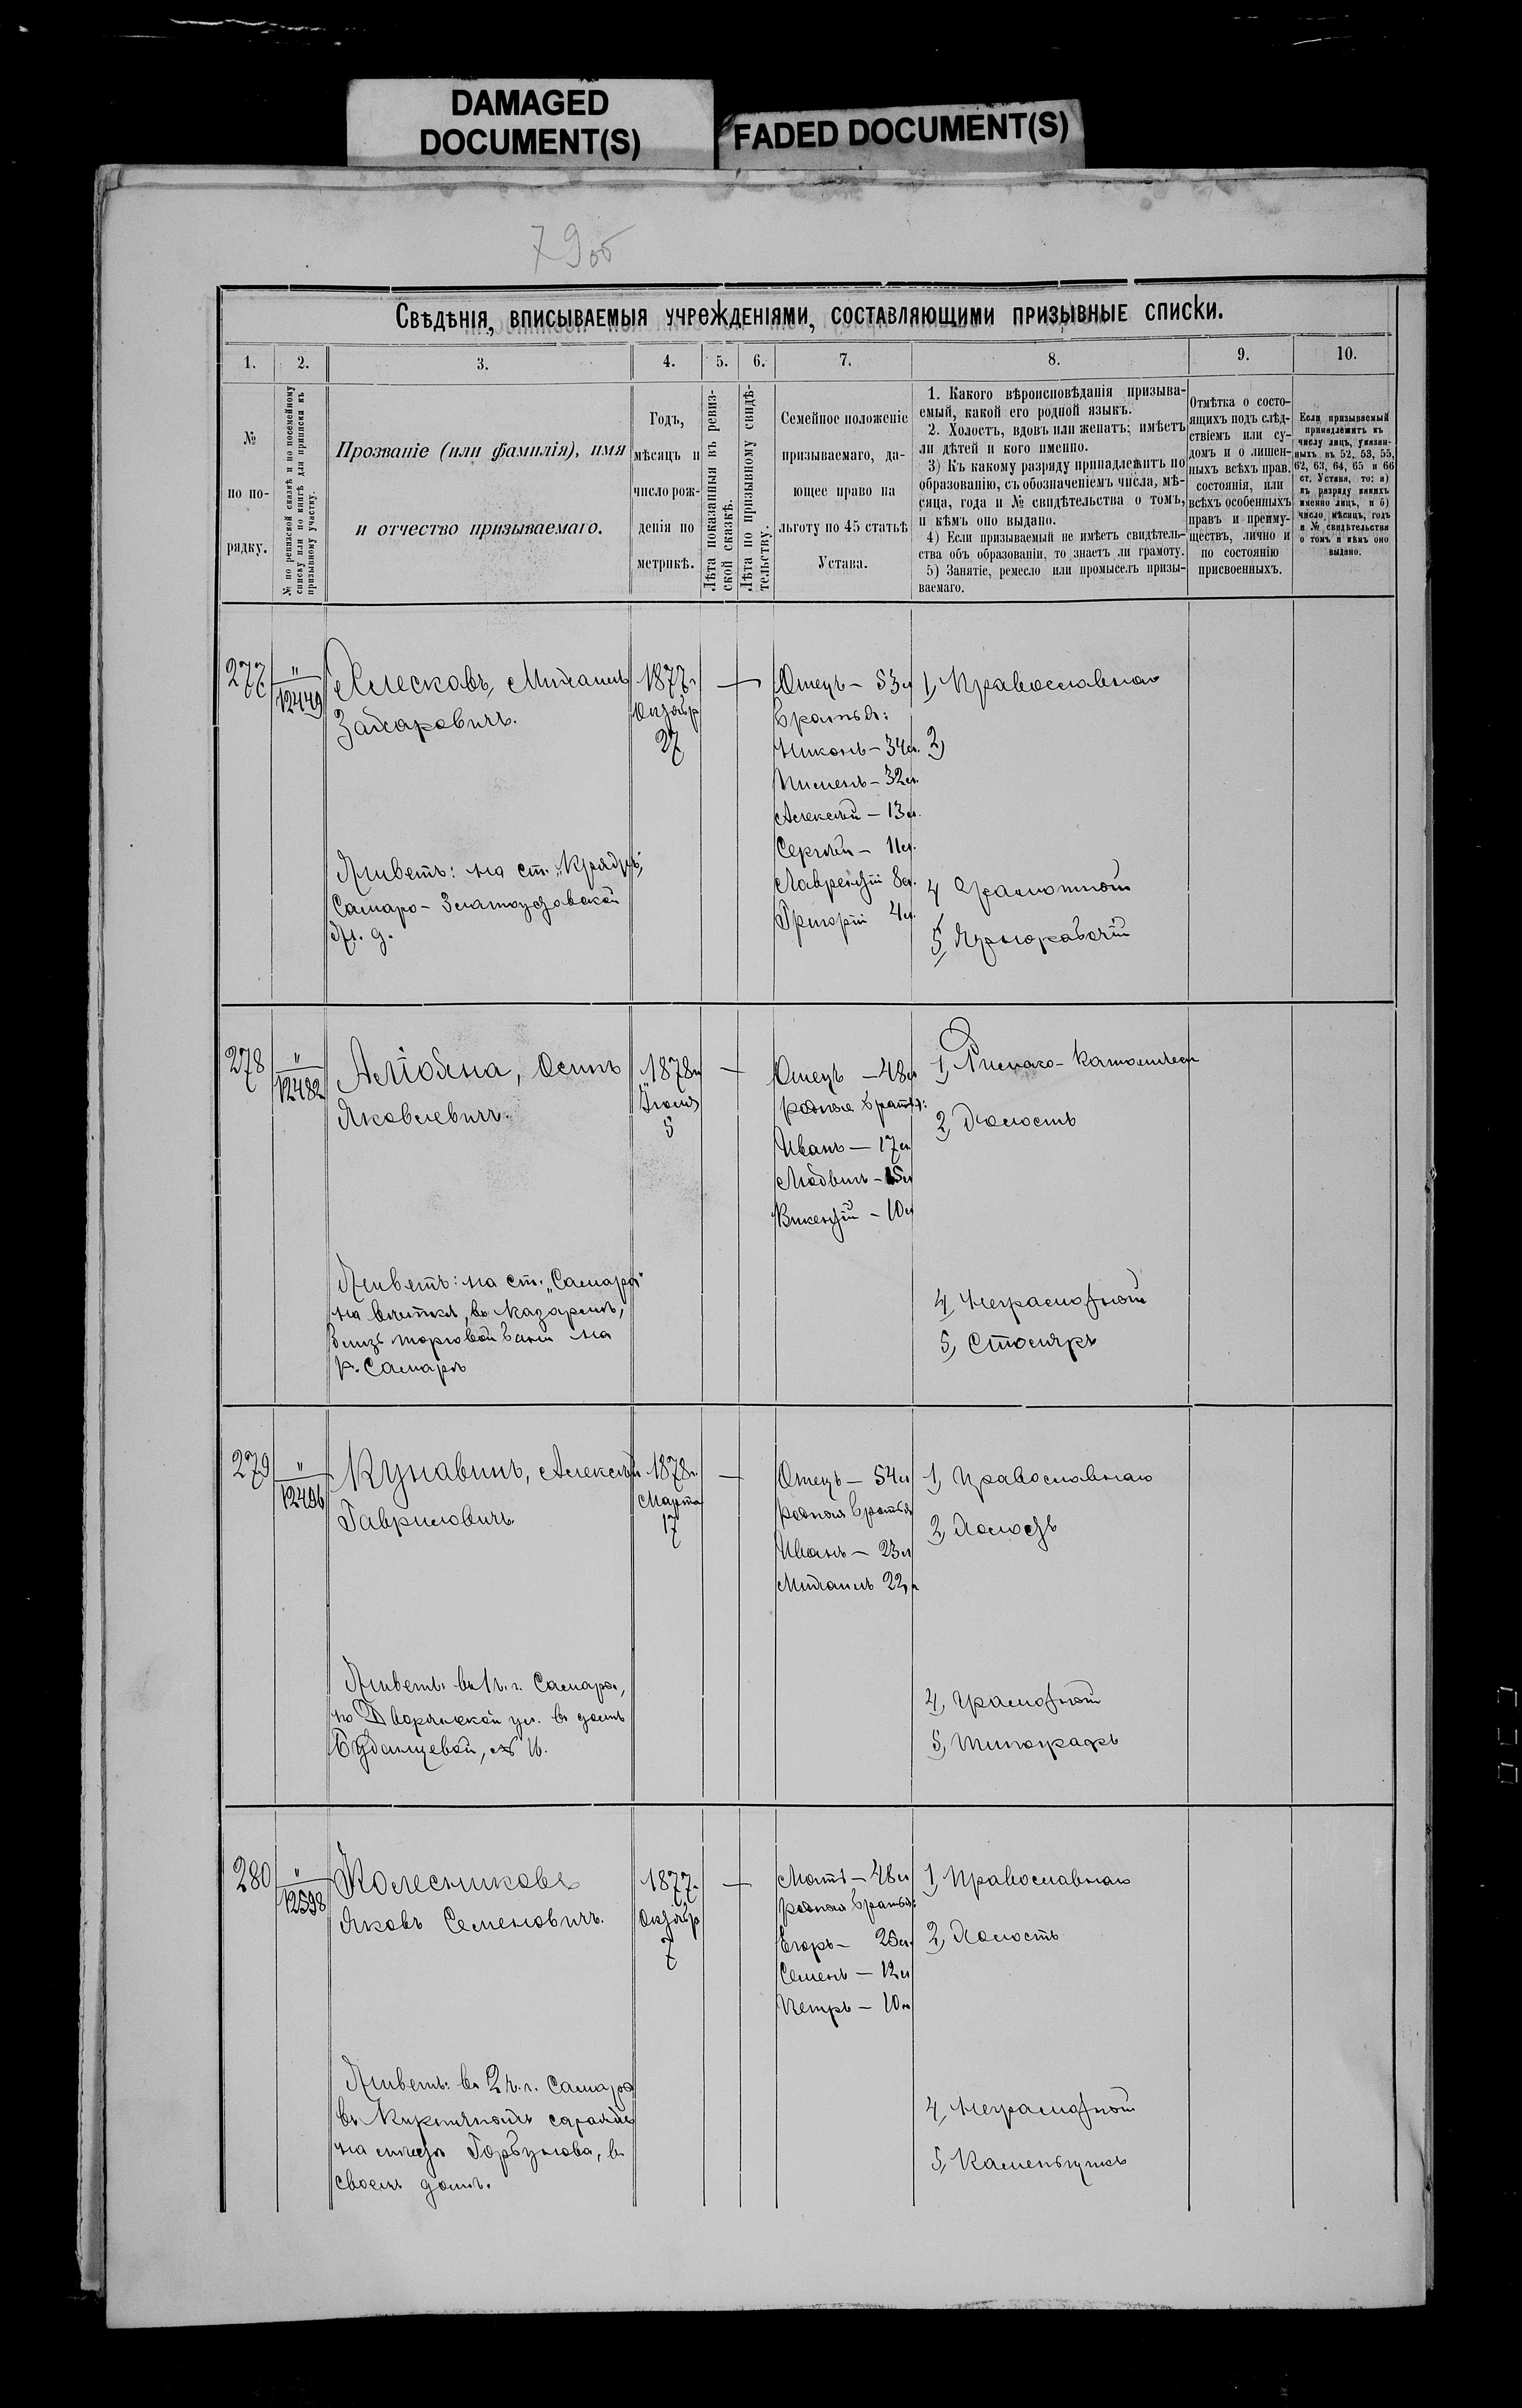 DAMAGED
DOCUMENT(S)
FADED DOCUMENT(S)
79об
Свѣдѣнія, вписываемыя учрежденіями, составляющими призывные списки.
1.
2.
3.
4.
5.
6.
7.
8.
9.
10.
№
по по-
рядку.
№ по ревизской сказкѣ и по посемейному
списку или по книгѣ для приписки къ
призывному участку.
Прозваніе (или фамилія), имя
и отчество призываемаго.
Годъ,
мѣсяцъ и
число рож-
денія по
метрикѣ.
Лѣта показанныя въ ревиз-
ской сказкѣ.
Лѣта по призывному свидѣ-
тельству.
Семейное положеніе
призываемаго, да-
ющее право на
льготу по 45 статьѣ
Устава.
1. Какого вѣроисповѣданія призыва-
емый, какой его родной языкъ.
2. Холостъ, вдовъ или женатъ; имѣетъ
ли дѣтей и кого именно.
3) Къ какому разряду принадлежитъ по
образованію, съ обозначеніемъ числа, мѣ-
сяца, года и № свидѣтельства о томъ,
и кѣмъ оно выдано.
4) Если призываемый не имѣетъ свидѣтель-
ства объ образованіи, то знаетъ ли грамоту.
5) Занятіе, ремесло или промыселъ призы-
ваемаго.
Отмѣтка о состо-
ящихъ подъ слѣд-
ствіемъ или су-
домъ и о лишен-
ныхъ всѣхъ прав.
состоянія, или
всѣхъ особенныхъ
правъ и преиму-
ществъ, лично и
по состоянію
присвоенныхъ.
Если призываемый
принадлежитъ къ
числу лицъ, указан-
ныхъ въ 52, 53, 55,
62, 63, 64, 65 и 66
ст. Устава, то: а)
къ разряду какихъ
именно лицъ, и б)
число, мѣсяцъ, годъ
и № свидѣтельства
о томъ и кѣмъ оно
выдано.
277
"
12449
Хлесковъ, Михаилъ
Захаровичъ.
Живетъ: на ст. "Кряжъ",
Самаро-Златоустовской
ж. д.
1877г.
Октябр
27
—
Отецъ – 53л
братья:
Никонъ – 34л.
Пименъ – 32л.
Алексѣй – 13л.
Сергѣй – 11л.
Лаврентій 8л.
Григорій 4л.
1, Православнаго
2,
4, Грамотный
5, Чернорабочій
278
"
12482
Осипъ
Яковлевичъ.
Живетъ: на ст. "Самара"
близь торговой бани на
р. Самарѣ
1878г
Іюля
5
—
Отецъ – 48л
родные братья:
Иванъ – 17л
Людвигъ – 15л
Викентій – 10л
1, Римско-Католическ
2, Холостъ
4, Неграмотный
5, Столяръ
279
"
12496
Кунавинъ, Алексѣй
Гавриловичъ
Живетъ: въ 1 ч. г. Самары,
по Дворянской ул. въ домѣ
Буданцевой, № 16.
1878г.
Марта
17
—
Отецъ – 54л
родные братья
Иванъ – 23л
Михаилъ 22л
1, Православнаго
2, Холостъ
4, Грамотный
5, Типографъ
280
"
12598
Колесниковъ
Яковъ Семеновичъ.
Живетъ: въ 2 ч. г. Самары
въ Кирпичныхъ сараяхъ
Горбунова, въ
своемъ домѣ.
1877г.
Октябр
7
—
Мать – 48л
родные братья:
Егоръ – 25л.
Семенъ – 12л
Петръ – 10л
1, Православнаго
2, Холостъ
4, Неграмотный
5, Каменьщикъ